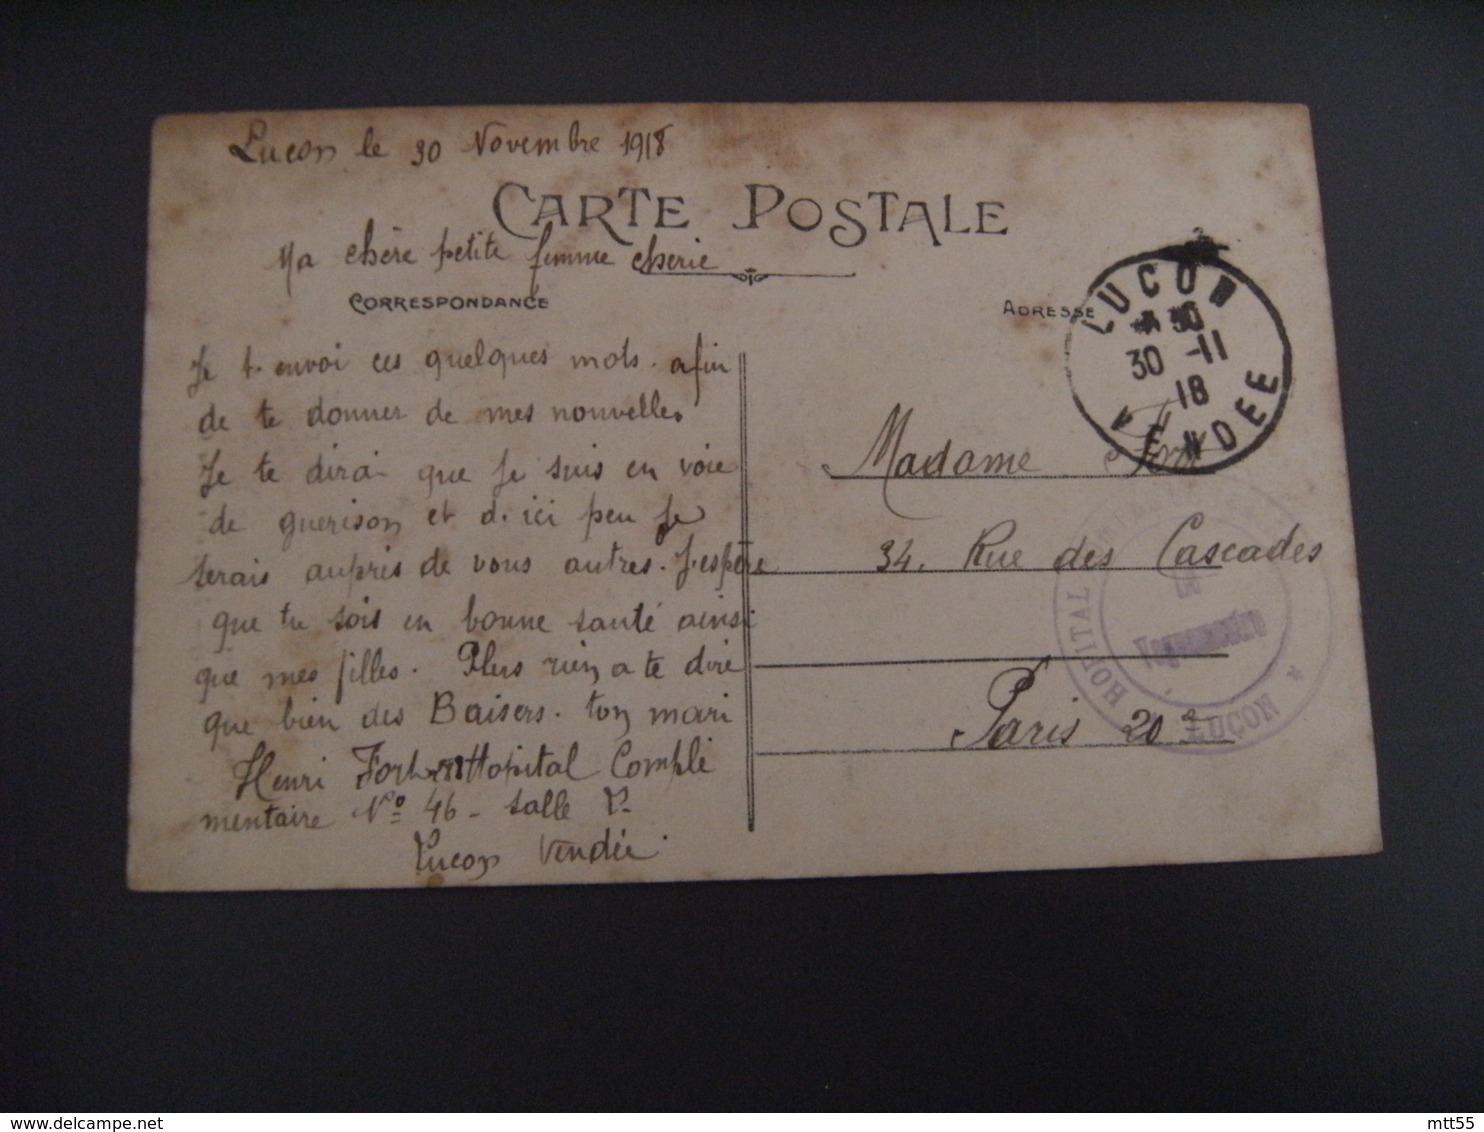 Luçon le 30 Novembre 1918
CARTE POSTALE
Ma chère petite femme cherie
CORRESPONDANCE
Je t. envoi ces quelques mots. afin
de te donner de mes nouvelles
Je te dirai que je suis en voie
de guerison et d. ici peu je
serais auprès de vous autres. J.espère
que tu sois en bonne santé ainsi
que mes filles. Plus rien a te dire
que bien des Baisers. ton mari
Henri Fort Hopital Complé
mentaire No 46 - salle
Luçon Vendée
ADRESSE
LUCON
30 -11
18
VENDEE
Madame Fort
34. Rue des Cascades
Paris 20e
HOPITAL
LUÇON *
mtt55